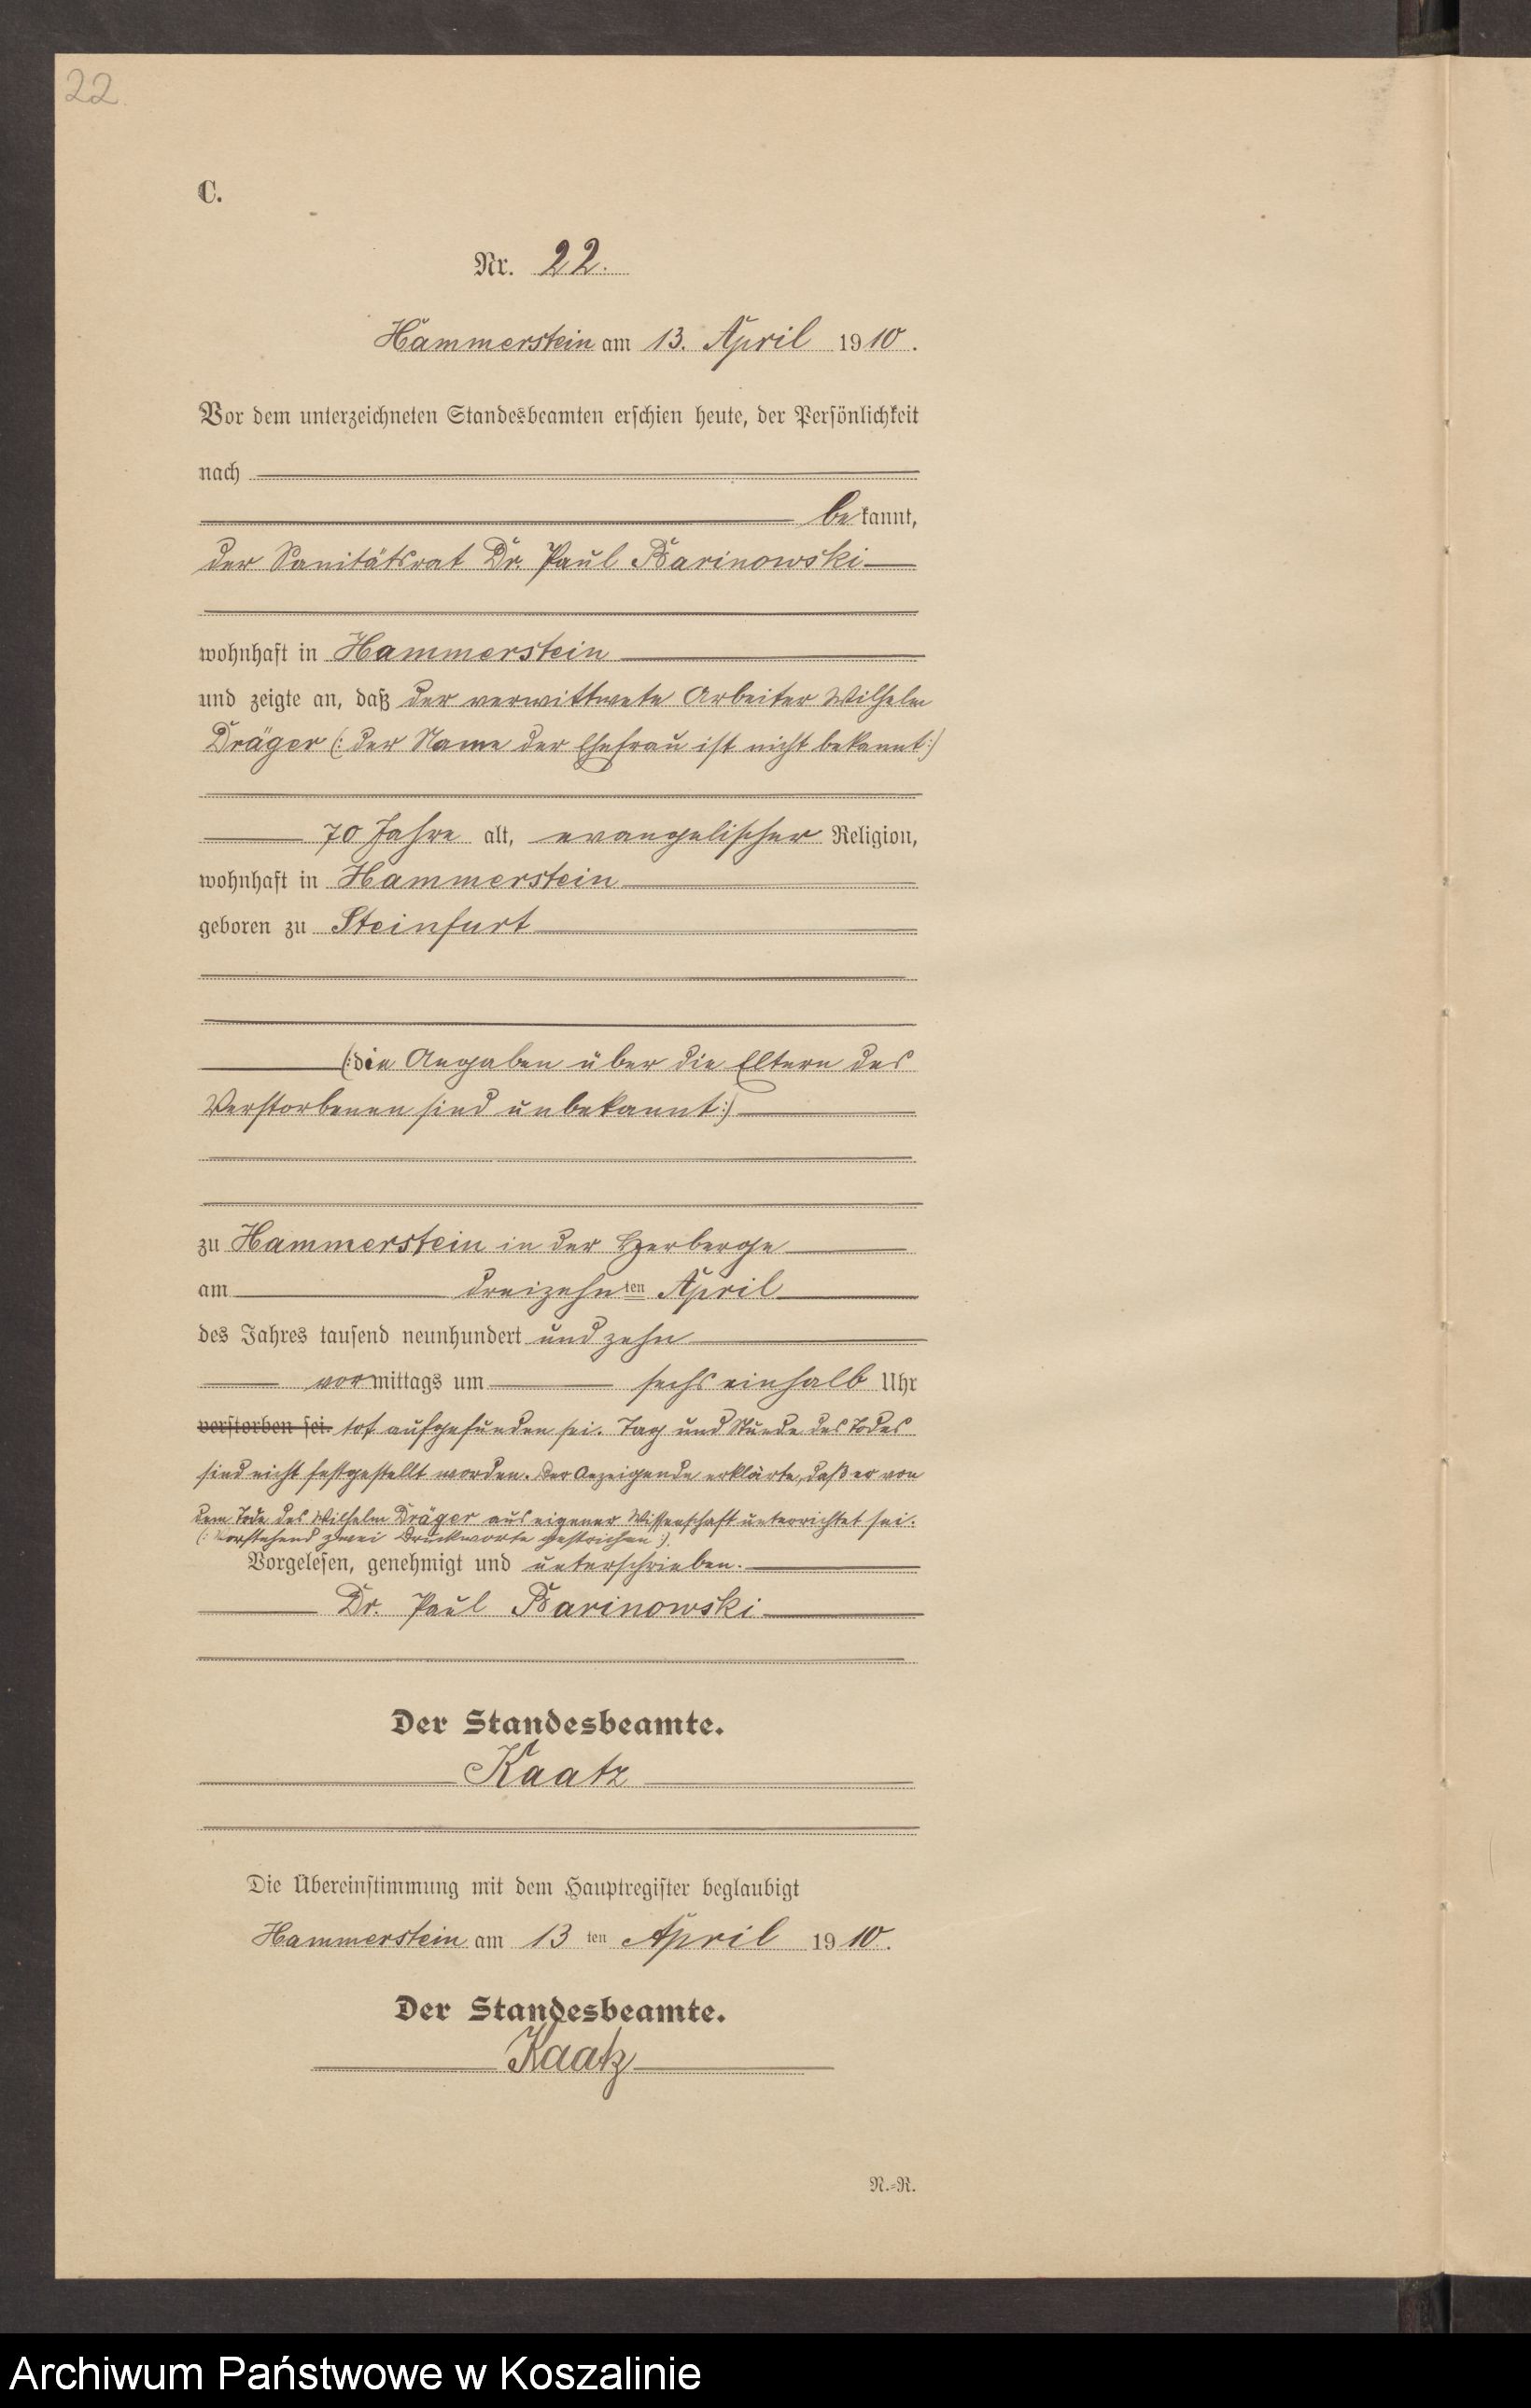 22
C.
Nr. 22.
Hammerstein am 13. April 1910.
Vor dem unterzeichneten Standesbeamten erschien heute, der Persönlichkeit
nach
bekannt,
der Sanitätsrat Dr. Paul Barinowski
wohnhaft in Hammerstein
und zeigte an, daß der verwittwete Arbeiter Wilhelm
Dräger (: der Name der Ehefrau ist nicht bekannt :)
70 Jahre alt, evangelischer Religion,
wohnhaft in Hammerstein
geboren zu Steinfurt
(: die Angaben über die Eltern des
Verstorbenen sind unbekannt :)
zu Hammerstein in der Herberge
am dreizehnten April
des Jahres tausend neunhundert und zehn
vormittags um sechs einhalb Uhr
verstorben sei. tot aufgefunden sei. Tag und Stunde des Todes
sind nicht festgestellt worden. Der Anzeigende erklärte, daß er von
dem Tode des Wilhelm Dräger aus eigener Wissenschaft unterrichtet sei.
(: Vorstehend zwei Druckworte gestrichen :).
Vorgelesen, genehmigt und unterschrieben.
Dr. Paul Barinowski
Der Standesbeamte.
Kaatz
Die Übereinstimmung mit dem Hauptregister beglaubigt
Hammerstein am 13 ten April 1910.
Der Standesbeamte.
Kaatz
N.=R.
Archiwum Państwowe w Koszalinie